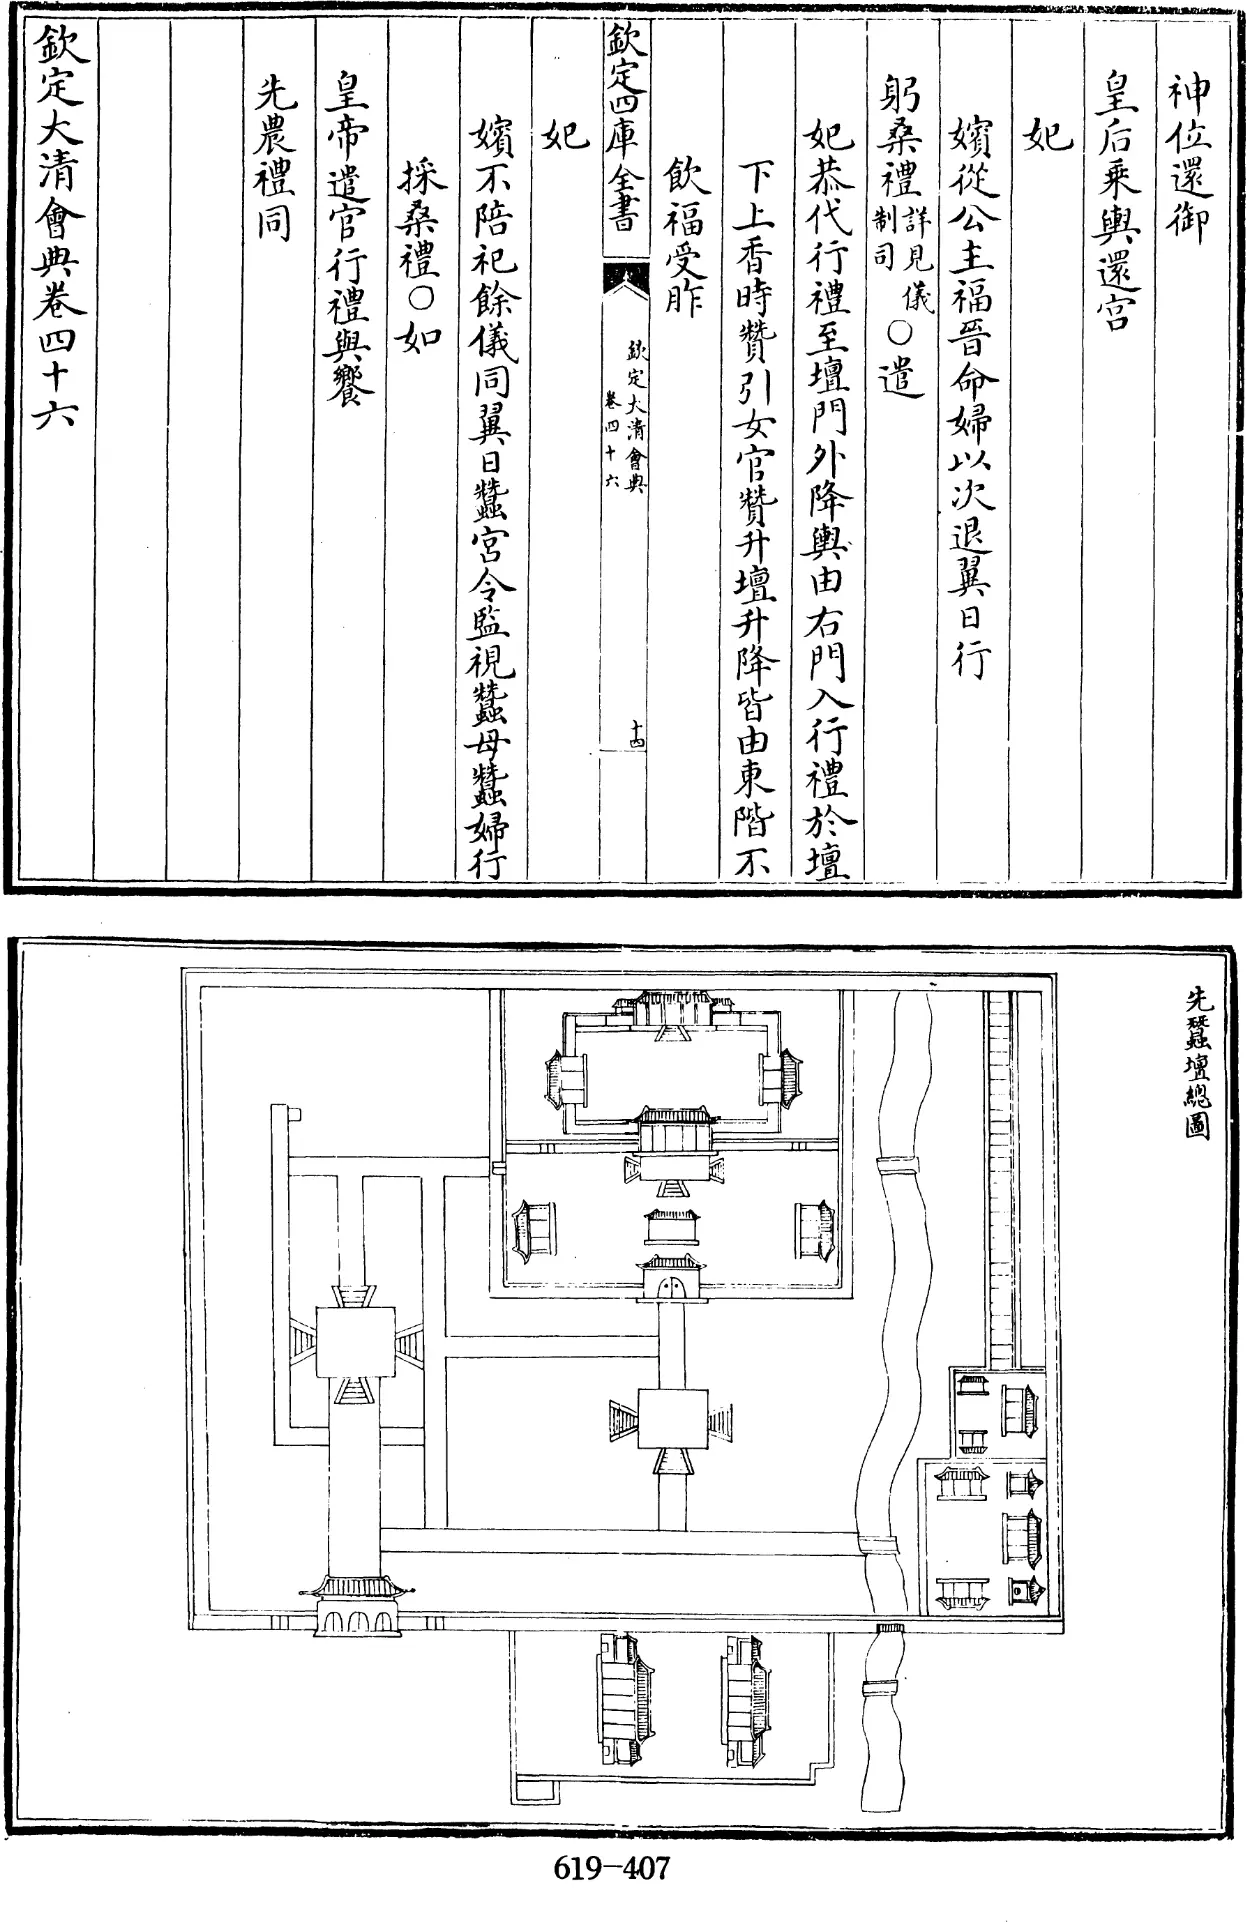 神位還御
皇后乗輿還宫
妃
嬪從公主福晉命婦以次退翼日行
躬桑禮詳見儀制司○遣
妃恭代行禮至壇門外降輿由右門入行禮於壇
下上香時贊引女官贊升壇升降皆由東階不
飲福受胙
欽定四庫全書
欽定大清會典
卷四十六
十四
妃
嬪不陪祀餘儀同翼日蠶宮令監視蠶母蠶婦行
採桑禮○如
皇帝遣官行禮與饗
先農禮同
欽定大清會典卷四十六
先蠶壇總圖
619-407